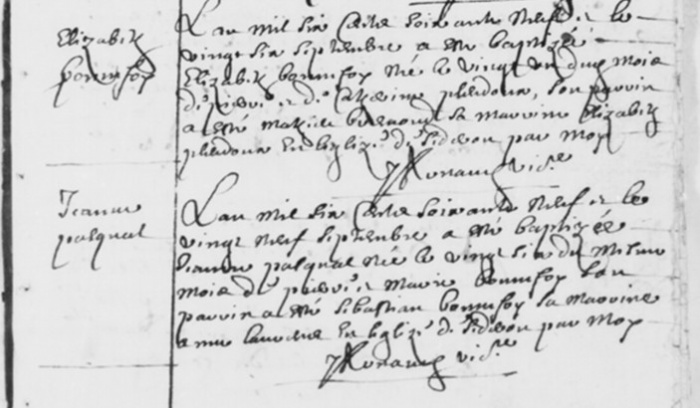 Elizabeth
bonnefoy
L'an mil six cents soixante neuf et le
vingt six septembre a esté baptizée
Elizabeth bonnefoy née le vingt un du mois
de pierre et de Catherine son parrin
a esté sa marrine Elizabeth
en leglize de par moy
vic.re
Jeanne
pasqual
L'an mil six cents soixante neuf et le
vingt neuf septembre a esté baptizée
Jeanne pasqual née le vingt six du mesme
mois de pierre et marie bonnefoy son
parrin a esté Sebastian bonnefoy sa marrine
anne en leglize de par moy
vic.re